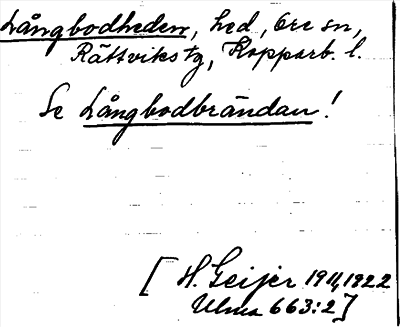 Långbodheden, hed, Ore sn,
Rättviks tg, Kopparb. l.
Se Långbodbrändan!
[H. Geijer 1911, 1922
Ulma 663:2]